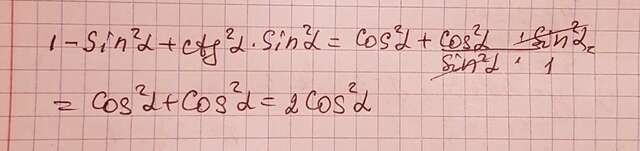 1 - Sin²α + ctg²α · Sin²α = Cos²α + Cos²α/Sin²α · Sin²α/1 =
= Cos²α + Cos²α = 2Cos²α